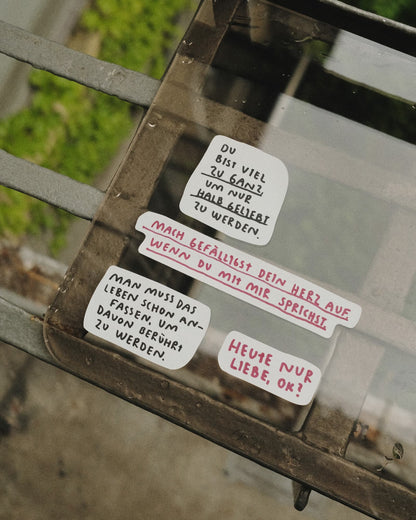 DU
BIST VIEL
ZU GANZ,
UM NUR
HALB GELIEBT
ZU WERDEN.
MACH GEFÄLLIGST DEIN HERZ AUF,
WENN DU MIT MIR SPRICHST
MAN MUSS DAS
LEBEN SCHON AN-
FASSEN, UM
DAVON BERÜHRT
ZU WERDEN.
HEUTE NUR
LIEBE, OK?